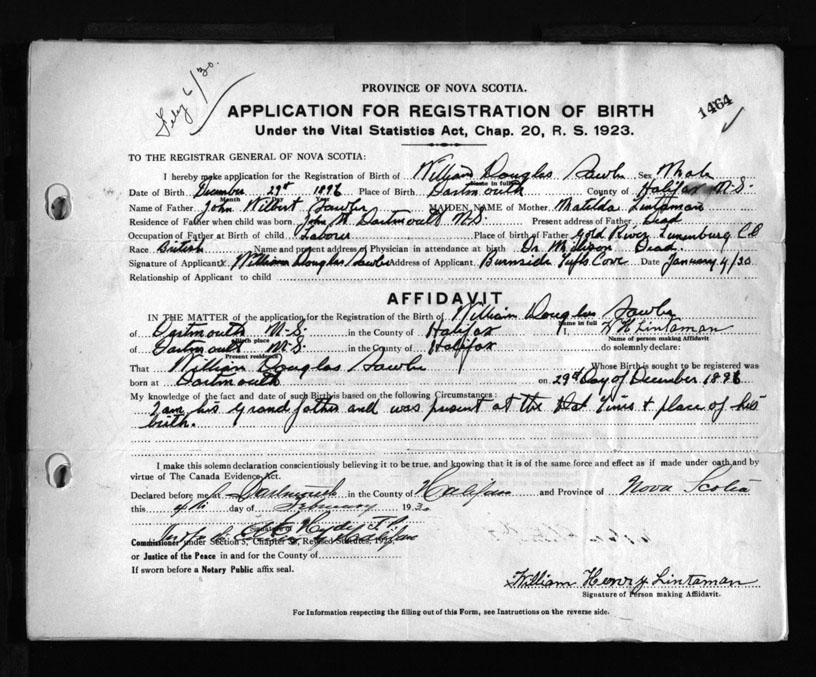 Feby 6/30.
PROVINCE OF NOVA SCOTIA.
1464
APPLICATION FOR REGISTRATION OF BIRTH
Under the Vital Statistics Act, Chap. 20, R. S. 1923.
TO THE REGISTRAR GENERAL OF NOVA SCOTIA:
I hereby make application for the Registration of Birth of William Douglas Lawlor Sex Male
Name in full
Date of Birth December 29th 1896 Place of Birth Dartmouth County of Halifax N.S.
Month Day Year
Name of Father John Wilbert Lawlor MAIDEN NAME of Mother Matilda Lintaman
Residence of Father when child was born Dartmouth N.S. Present address of Father Dead
Occupation of Father at Birth of child Laborer Place of birth of Father Gold River Lunenburg Co
Race British Name and present address of Physician in attendance at birth Dr. Dead.
Signature of Applicant x William Douglas Lawlor Address of Applicant Burnside Tufts Cove Date January 4/30
Relationship of Applicant to child
AFFIDAVIT
IN THE MATTER of the application for the Registration of the Birth of William Douglas Lawlor
Name in full
of Dartmouth N.S. in the County of Halifax I, W H Lintaman
Birth place Name of person making Affidavit
of Dartmouth N.S. in the County of Halifax do solemnly declare:
Present residence
That William Douglas Lawlor Whose Birth is sought to be registered was
born at Dartmouth on 29th Day of December 1896
My knowledge of the fact and date of such Birth is based on the following Circumstances:
I am his Grand father and was present at the Dat time & place of his
birth.
I make this solemn declaration conscientiously believing it to be true, and knowing that it is of the same force and effect as if made under oath and by
virtue of The Canada Evidence Act.
Declared before me at Dartmouth in the County of Halifax and Province of Nova Scotia
this 4th day of February 1930
Signature of
Commissioner under Section 3, Chapter Revised Statutes, 1923
or Justice of the Peace in and for the County of
If sworn before a Notary Public affix seal.
William Henry Lintaman
Signature of Person making Affidavit.
For Information respecting the filling out of this Form, see Instructions on the reverse side.